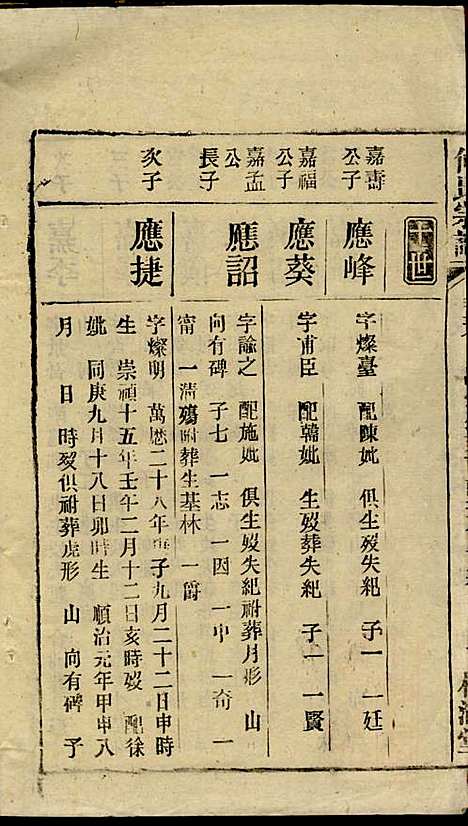 十世
嘉壽公子
應峰
字燦臺 配陳妣 俱生歿失紀 子一 一廷
嘉福公子
應葵
字甫臣 配韓妣 生歿葬失紀 子一 一賢
嘉孟公長子
應詔
字諭之 配施妣 俱生歿失紀祔葬月形 山
向有碑 子七 一志 一因 一中 一奇 一
甯 一清殤附葬生基林 一爵
次子
應捷
字燦明 萬曆二十八年庚子九月二十二日申時
生 崇禎十五年壬午二月十二日亥時歿 配徐
妣 同庚九月十八日卯時生 順治元年甲申八
月 日 時歿俱祔葬虎形 山 向有碑 子